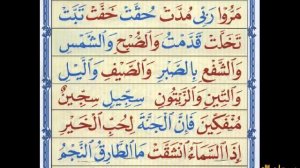 مَرُّوْا رَبِّىْ مُدَّتْ حُقَّتْ خَفَّتْ تَبَّتْ
تَخَلَّتْ قَدَّمَتْ وَالصُّبْحِ وَالشَّمْسِ
وَالشَّفْعِ بِالصَّبْرِ وَالصَّيْفِ وَالَّيْلِ
وَالتِّيْنِ وَالزَّيْتُوْنِ سِجِّيْلٍ سِجِّيْنٌ
مُنْفَكِّيْنَ فَاِنَّ الْجَنَّةَ لِحُبِّ الْخَيْرِ
اِذَا السَّمَآءُ انْشَقَّتْ مَا الطَّارِقُ النَّجْمُ